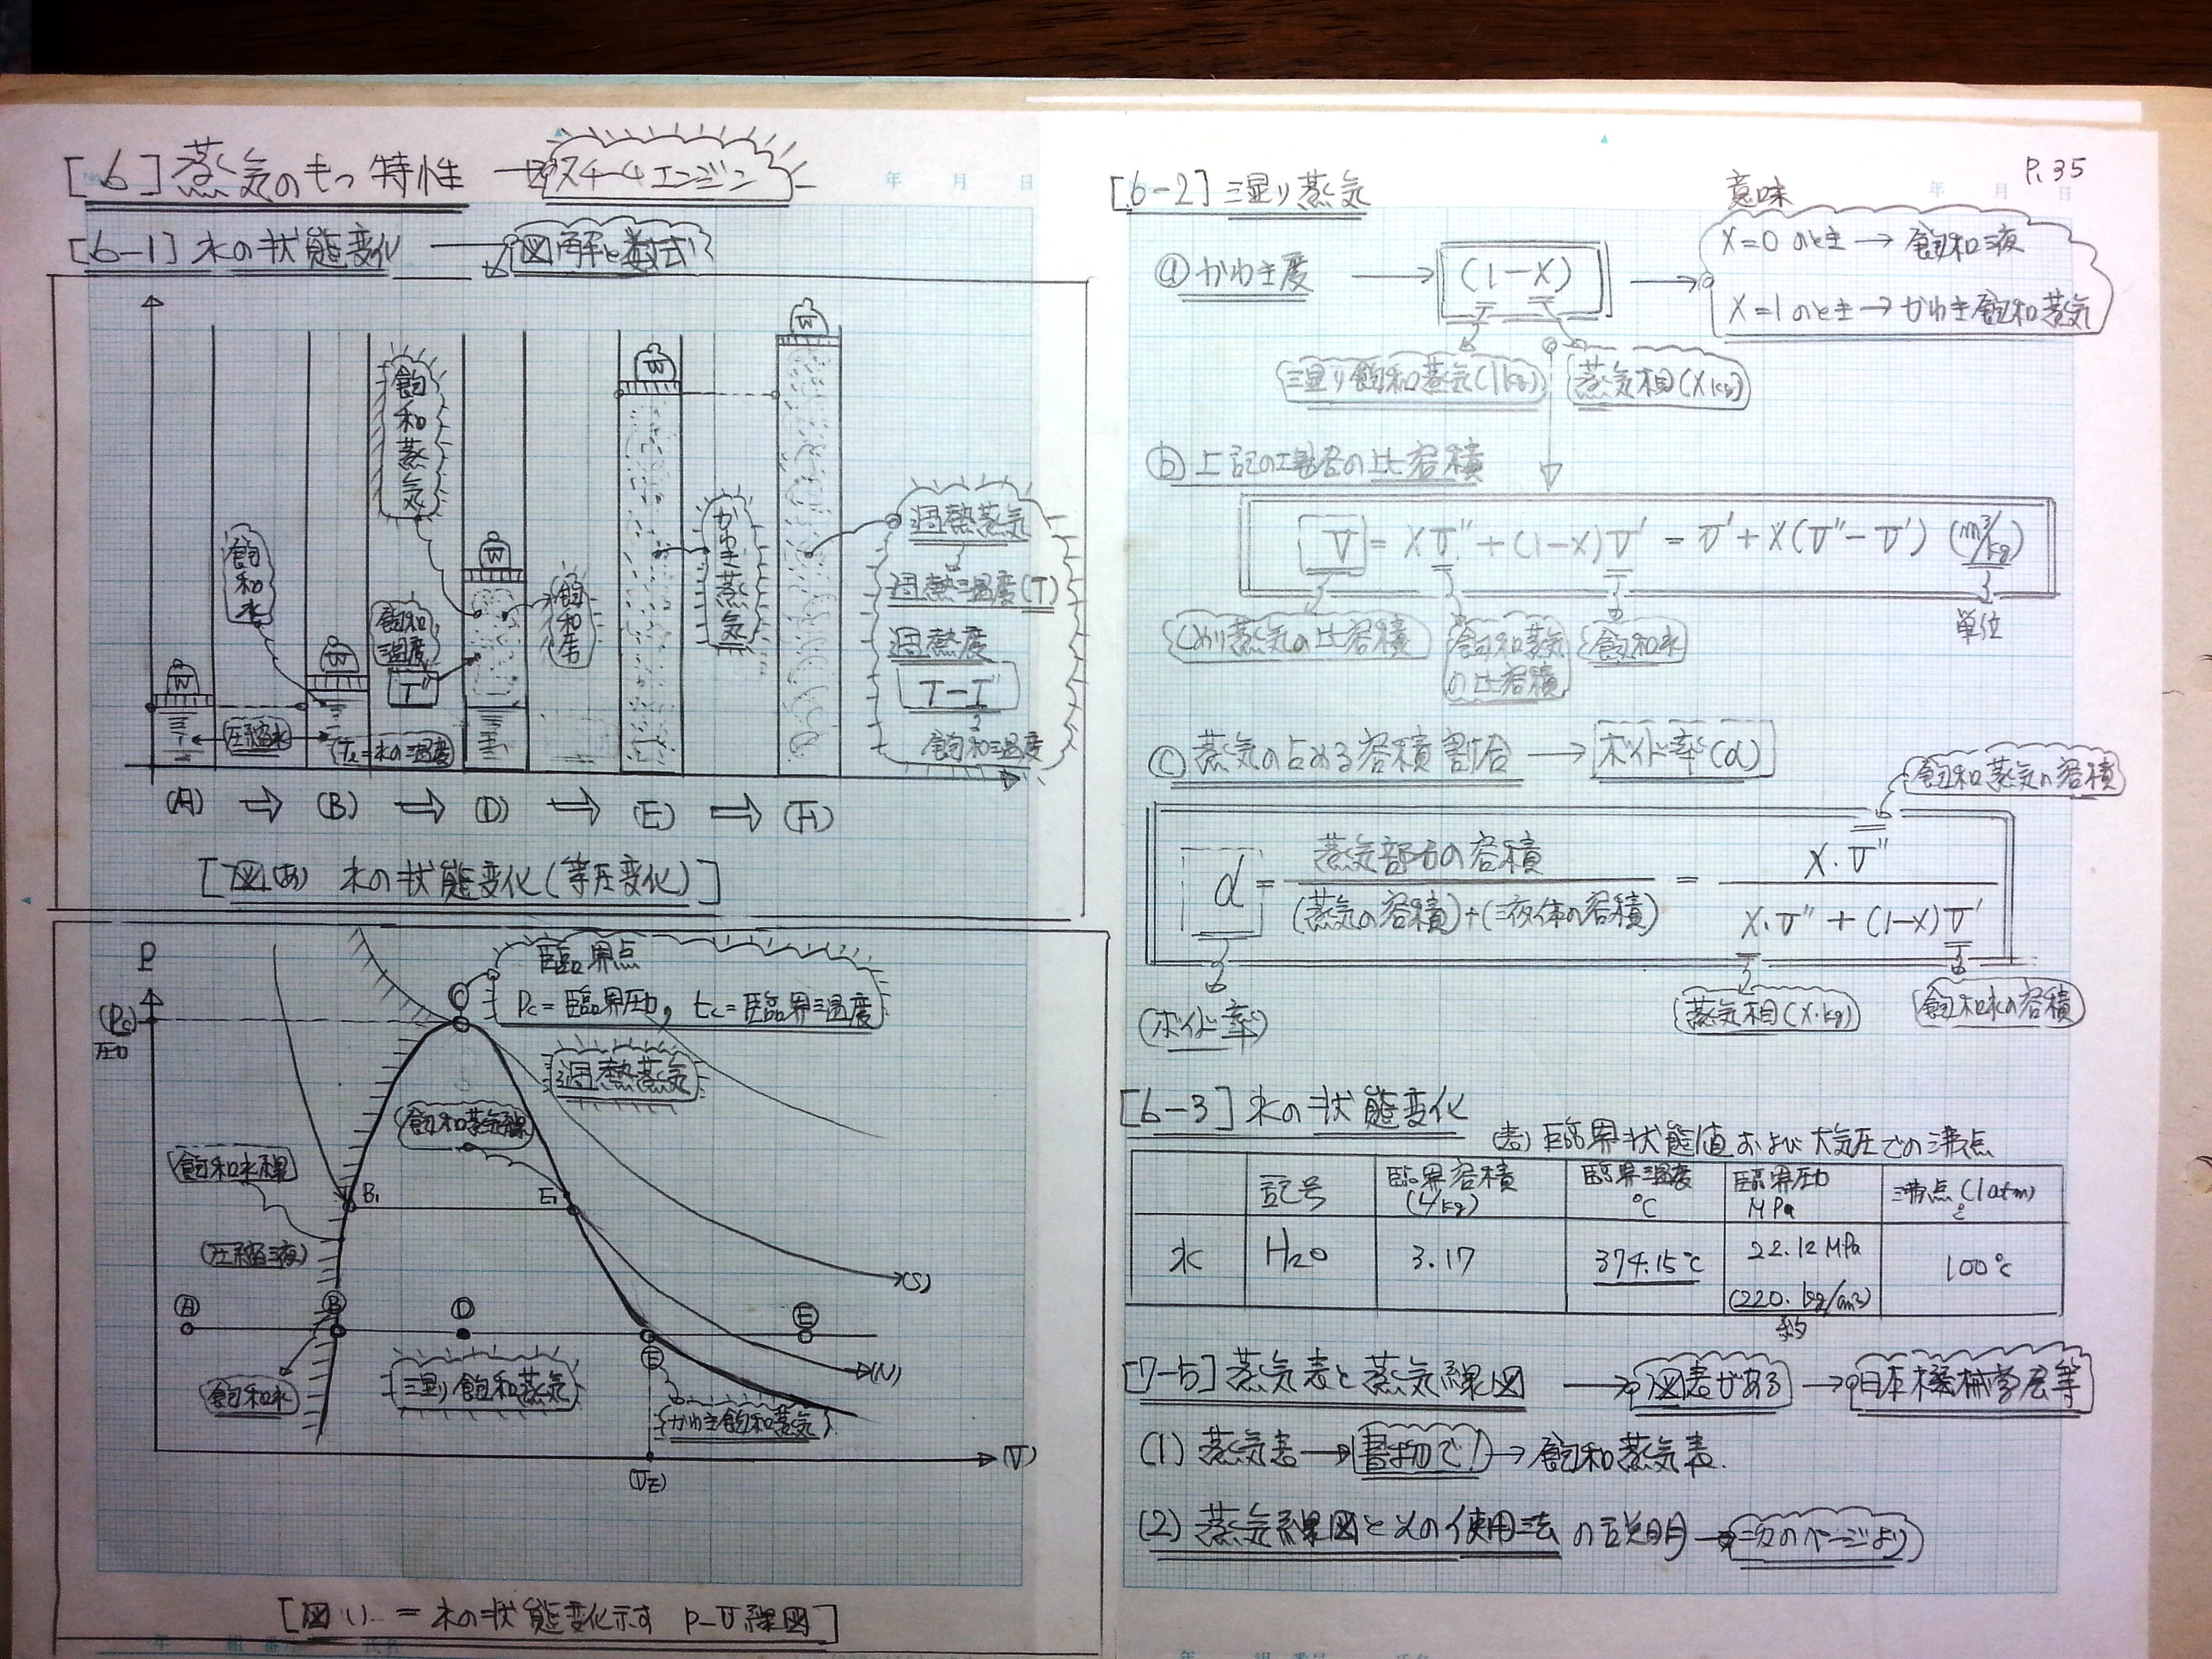 [6] 蒸気のもつ特性 → スチームエンジン
[6-1] 水の状態変化 → 図解と数式
飽和蒸気
飽和水
飽和温度
T"
W
W
W
W
W
飽和
かわき蒸気
過熱蒸気
過熱温度(T)
過熱度
T-T"
飽和温度
圧縮水
(T₂=水の温度)
(A) ⇒ (B) ⇒ (D) ⇒ (E) ⇒ (F)
[図(あ) 水の状態変化(等圧変化)]
P
(Pc)
圧力
C
臨界点
Pc=臨界圧力, tc=臨界温度
過熱蒸気
飽和蒸気線
飽和水線
B₁
E₁
(圧縮液)
(S)
A
B
D
E
E
(N)
飽和水
湿り飽和蒸気
かわき飽和蒸気
(V)
(VE)
[図い = 水の状態変化示す P-V線図]
P.35
[6-2] 湿り蒸気
意味
ⓐ かわき度 → (1-X) →
X=0のとき → 飽和液
X=1のとき → かわき飽和蒸気
湿り飽和蒸気(1kg)
蒸気相(Xkg)
ⓑ 上記の場合の比容積
V = XV" + (1-X)V' = V' + X(V"-V') (m³/kg)
単位
しめり蒸気の比容積
飽和蒸気の比容積
飽和水
ⓒ 蒸気の占める容積割合 → ボイド率(α)
飽和蒸気の容積
α = 蒸気部分の容積 / (蒸気の容積)+(液体の容積) = X・V" / X・V" + (1-X)V'
(ボイド率)
蒸気相(X・kg)
飽和水の容積
[6-3] 水の状態変化
(表) 臨界状態値および大気圧での沸点
記号 臨界容積(L/kg) 臨界温度 ℃ 臨界圧力 MPa 沸点(1atm) ℃
水 H₂O 3.17 374.15℃ 22.12 MPa 100℃
(220. kg/cm²)
約
[7-5] 蒸気表と蒸気線図 → 図表がある → 日本機械学会等
(1) 蒸気表 → 書物で! → 飽和蒸気表.
(2) 蒸気線図とその使用法の説明 → 次のページより